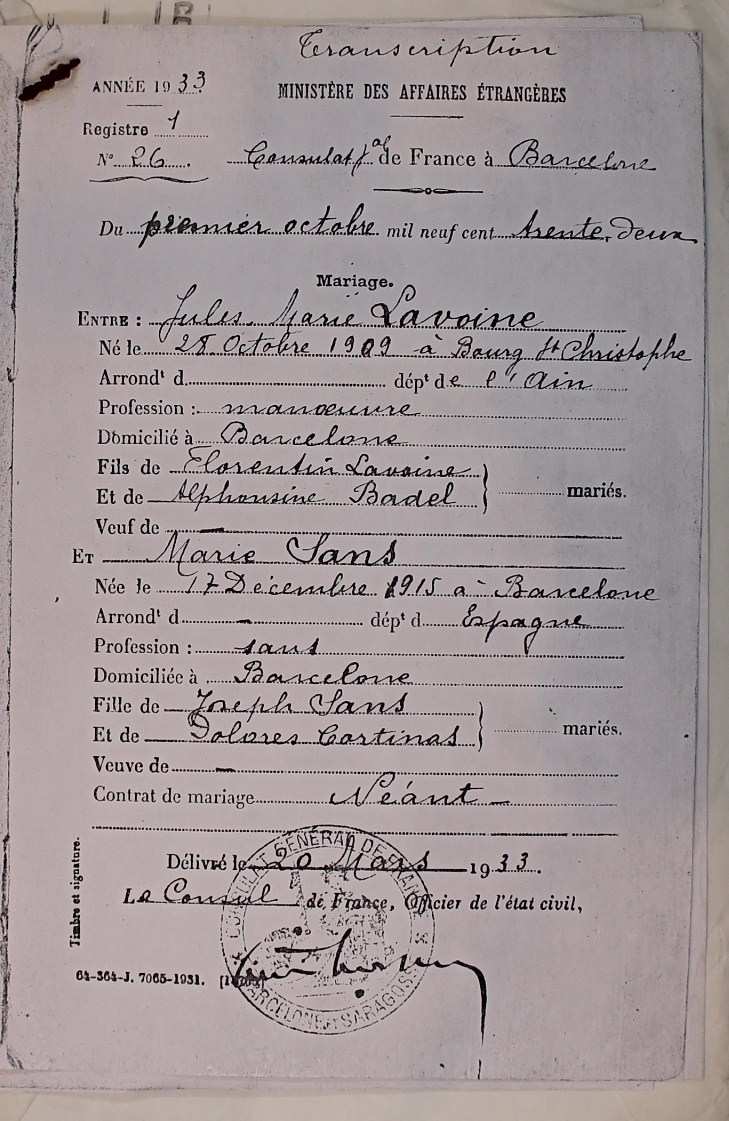 Transcription
ANNÉE 1933
MINISTÈRE DES AFFAIRES ÉTRANGÈRES
Registre 1
N° 26. Consulat Gal de France à Barcelone
Du premier octobre mil neuf cent trente-deux
Mariage.
ENTRE : Jules Marie Lavoine
Né le 28 Octobre 1909 à Bourg St Christophe
Arrondt d dépt de l'Ain
Profession : manœuvre
Domicilié à Barcelone
Fils de Florentin Lavoine
Et de Alphonsine Badel } mariés.
Veuf de —
ET Marie Sans
Née le 17 Décembre 1915 à Barcelone
Arrondt d — dépt d Espagne
Profession : sans
Domiciliée à Barcelone
Fille de Joseph Sans
Et de Dolores Cortinas } mariés.
Veuve de —
Contrat de mariage Néant —
Délivré le 20 Mars 1933.
Le Consul de France, Officier de l'état civil,
Timbre et signature.
CONSULAT GÉNÉRAL DE FRANCE
BARCELONE SARAGOSSE
64-364-J. 7065-1931.